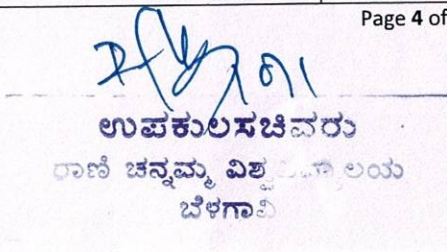 Page 4 of
ಉಪಕುಲಸಚಿವರು
ರಾಣಿ ಚನ್ನಮ್ಮ
ಬೆಳಗಾವಿ